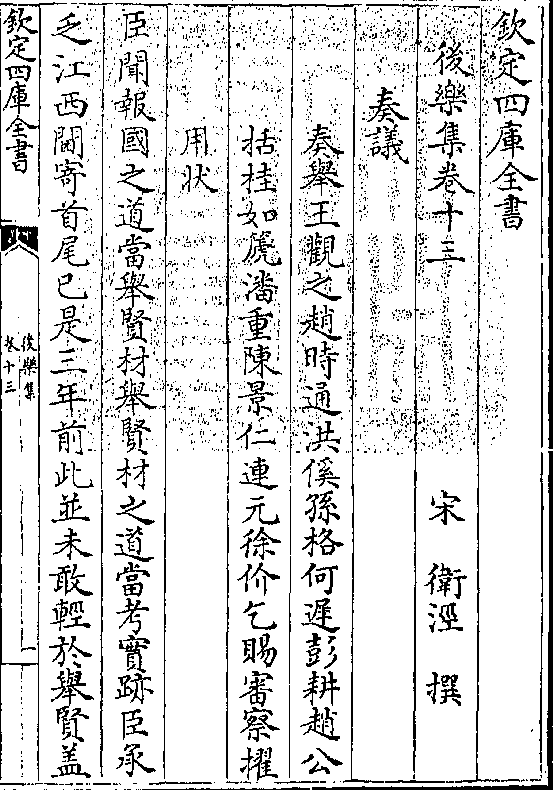 欽定四庫全書
後樂集卷十三 宋 衛涇 撰
奏議
奏舉王觀之趙時通洪偰孫格何遲彭耕趙公
括桂如箎潘重陳景仁連元徐价乞賜審察擢
用狀
臣聞報國之道當舉賢材舉賢材之道當考實跡臣承
乏江西閫寄首尾已是三年前此並未敢輕於舉賢盖
欽定四庫全書
後樂集
卷十三
一